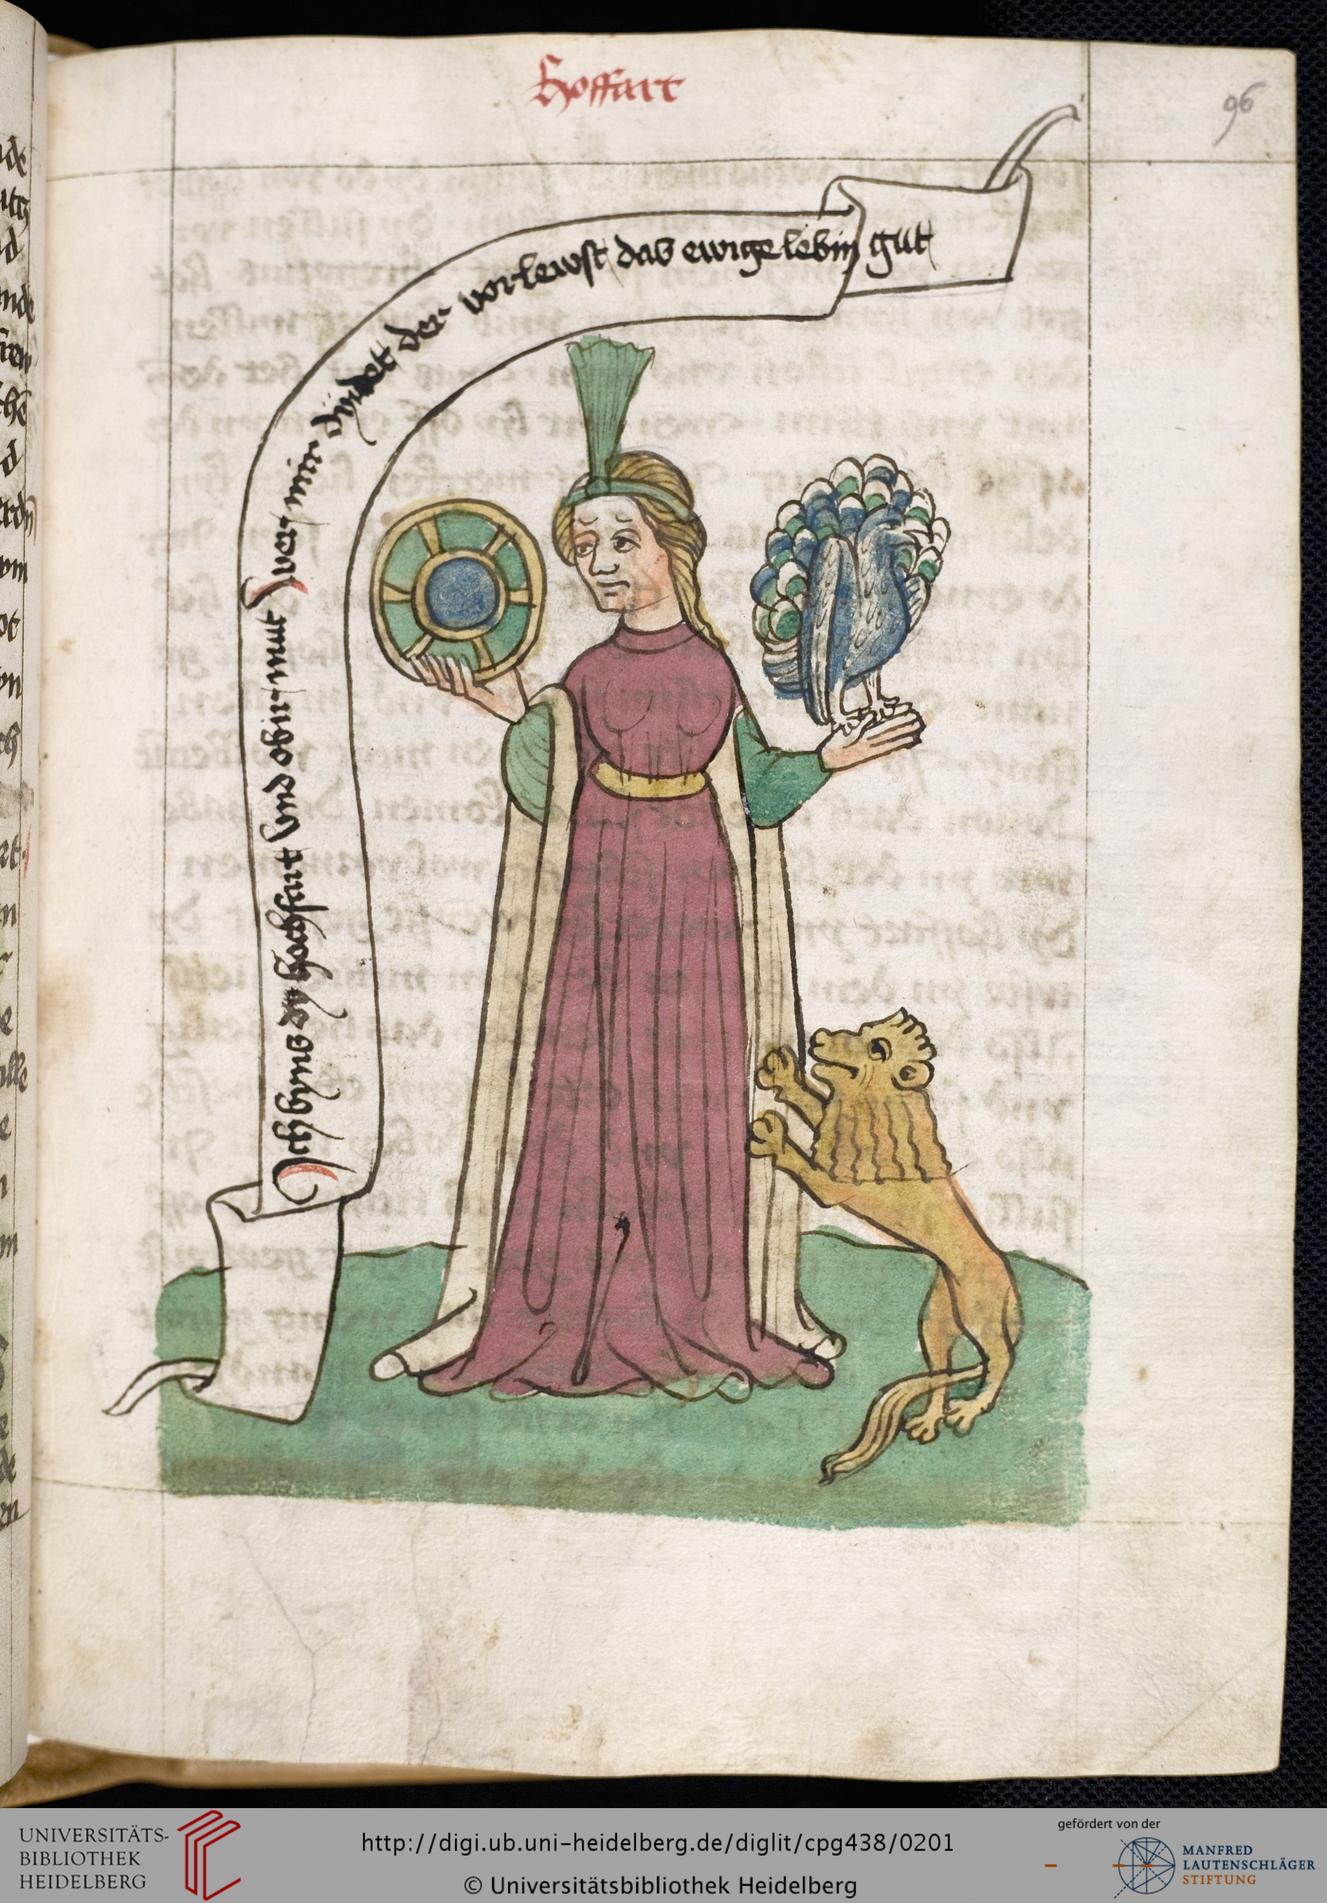 Hoffart
96
Ich byns dy hochfart vnd obirmut wer mir dynet der vorlewst das ewige lebin gut
UNIVERSITÄTS-
BIBLIOTHEK
HEIDELBERG
http://digi.ub.uni-heidelberg.de/diglit/cpg438/0201
© Universitätsbibliothek Heidelberg
gefördert von der
MANFRED
LAUTENSCHLÄGER
STIFTUNG